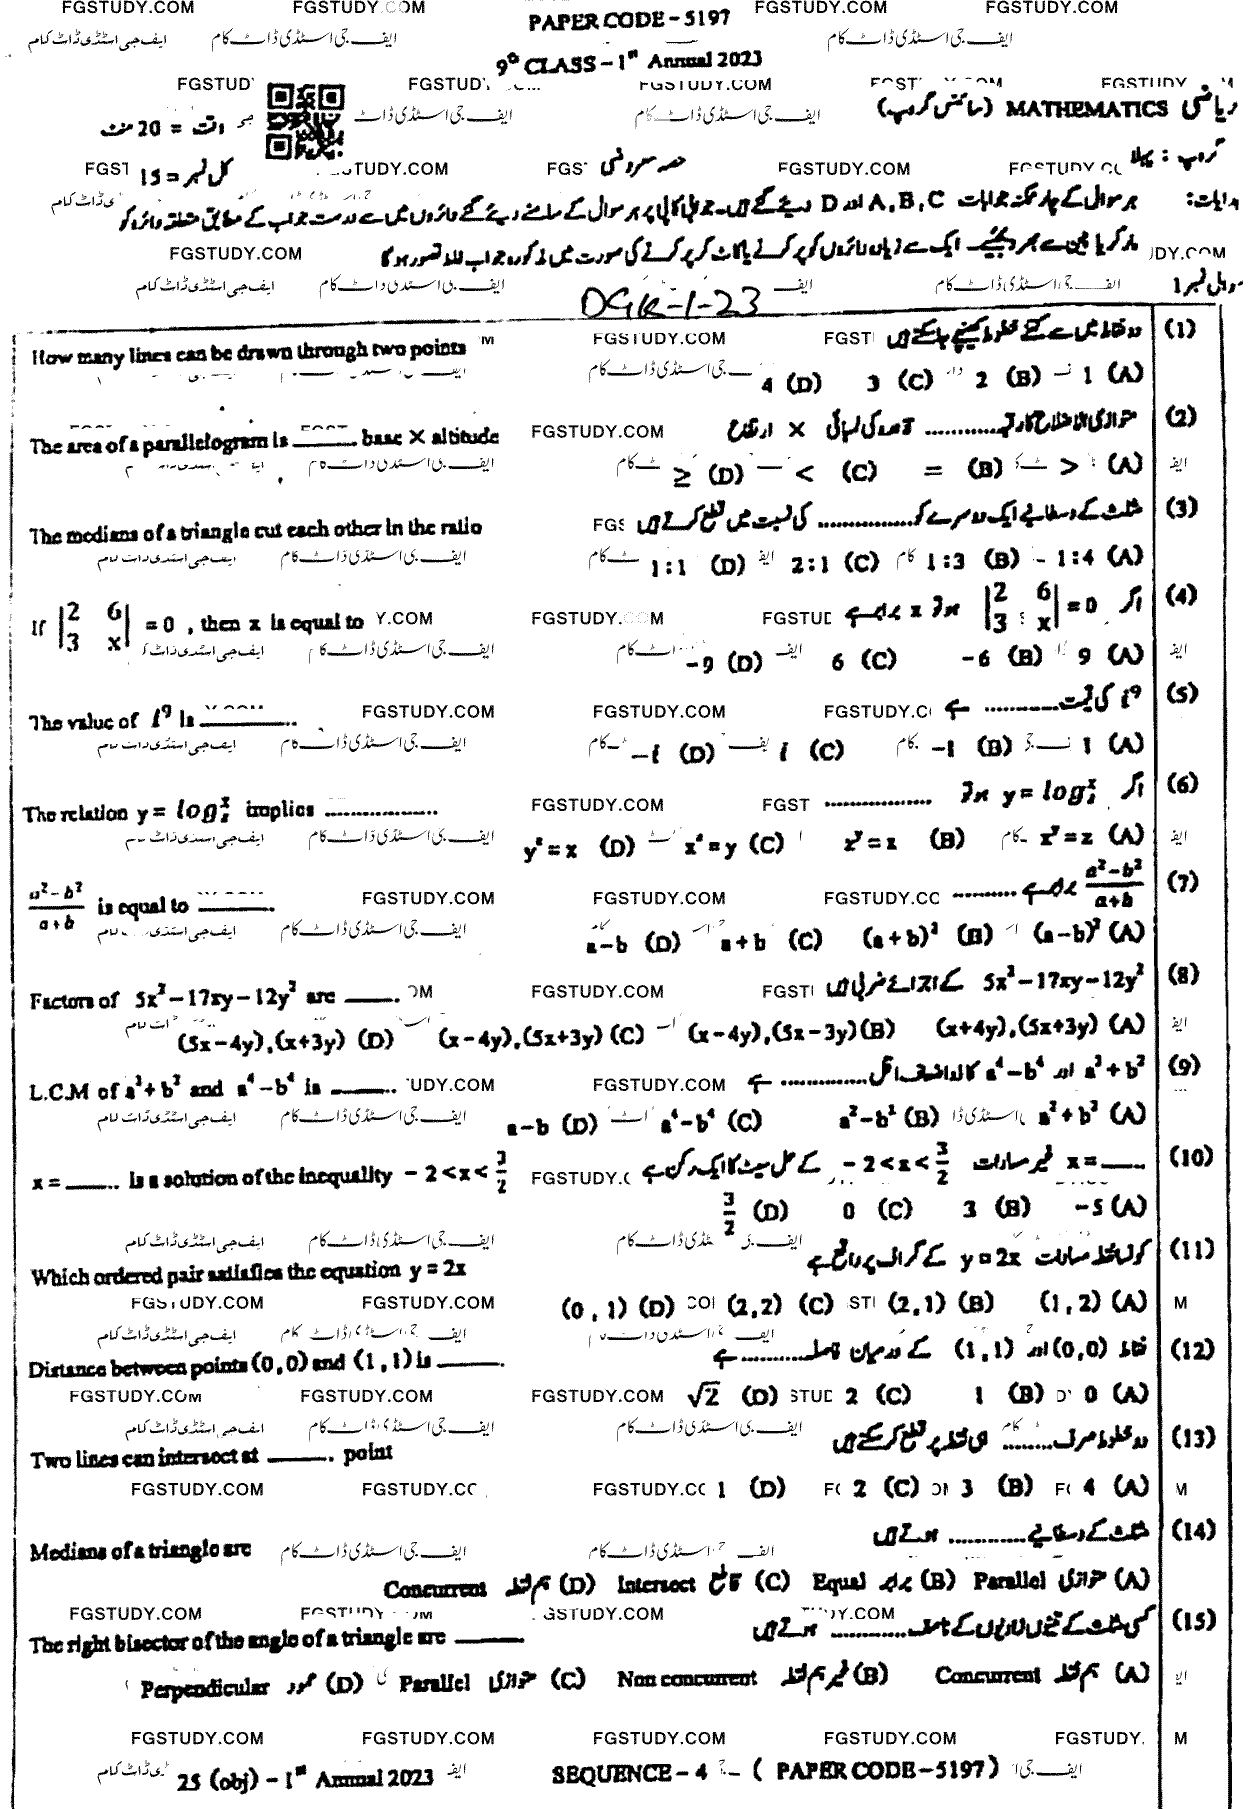 PAPER CODE - 5197
9th CLASS - 1st Annual 2023
ریاضی MATHEMATICS (سائنس گروپ)
وقت = 20 منٹ
گروپ : پہلا
حصہ معروضی
کل نمبر = 15
ہدایات: ہر سوال کے چار ممکنہ جوابات A, B, C اور D دیئے گئے ہیں۔ جوابی کاپی پر ہر سوال کے سامنے دیئے گئے دائروں میں سے درست جواب کے مطابق متعلقہ دائرہ کو
مارکر یا پین سے بھر دیجئیے۔ ایک سے زیادہ دائروں کو پر کرنے یا کاٹ کر پر کرنے کی صورت میں مذکورہ جواب غلط تصور ہو گا
سوال نمبر 1
DGK-1-23
(1) دو نقاط میں سے کتنے خطوط کھینچے جا سکتے ہیں
How many lines can be drawn through two points
1 (A) 2 (B) 3 (C) 4 (D)
(2) متوازی الاضلاع کا رقبہ ............ قاعدہ کی لمبائی × ارتفاع
The area of a parallelogram is ______ base × altitude
> (A) = (B) < (C) ≥ (D)
(3) مثلث کے وسطانیے ایک دوسرے کو ............ کی نسبت میں قطع کرتے ہیں
The medians of a triangle cut each other in the ratio
1:4 (A) 1:3 (B) 2:1 (C) 1:1 (D)
(4) اگر |2 6; 3 x| = 0 ہو تو x برابر ہے
If |2 6; 3 x| = 0 , then x is equal to
9 (A) -6 (B) 6 (C) -9 (D)
(5) i⁹ کی قیمت ............ ہے
The value of i⁹ is ______
1 (A) -1 (B) i (C) -i (D)
(6) اگر y = log_z^x ہو تو ............
The relation y = log_z^x implies ............
(A) (B) (C) x^z = y (D) y^z = x
(7) (a²-b²)/(a+b) برابر ہے ............
(a²-b²)/(a+b) is equal to ______
(a-b)² (A) (a+b)² (B) a+b (C) a-b (D)
(8) 5x²-17xy-12y² کے اجزائے ضربی ہیں
Factors of 5x²-17xy-12y² are ______.
(x+4y),(5x+3y) (A) (x-4y),(5x-3y) (B) (x-4y),(5x+3y) (C) (5x-4y),(x+3y) (D)
(9) a²+b² اور a⁴-b⁴ کا ذواضعاف اقل ............ ہے
L.C.M of a²+b² and a⁴-b⁴ is ______.
a²+b² (A) a²-b² (B) a⁴-b⁴ (C) a-b (D)
(10) x = ____ غیر مساوات -2<x<3/2 کے حل سیٹ کا ایک رکن ہے
x = ____ is a solution of the inequality -2<x<3/2
-5 (A) 3 (B) 0 (C) 3/2 (D)
(11) کونسا نقطہ مساوات y = 2x کے گراف پر واقع ہے
Which ordered pair satisfies the equation y = 2x
(1,2) (A) (2,1) (B) (2,2) (C) (0,1) (D)
(12) نقاط (0,0) اور (1,1) کے درمیان فاصلہ ............ ہے
Distance between points (0,0) and (1,1) is ______.
0 (A) 1 (B) 2 (C) √2 (D)
(13) دو خطوط صرف ............ ہی نقطہ پر قطع کر سکتے ہیں
Two lines can intersect at ______. point
4 (A) 3 (B) 2 (C) 1 (D)
(14) مثلث کے وسطانیے ............ ہوتے ہیں
Medians of a triangle are
(A) متوازی Parallel (B) برابر Equal (C) قاطع Intersect (D) ہم نقطہ Concurrent
(15) کسی مثلث کے تینوں زاویوں کے ناصف ............ ہوتے ہیں
The right bisector of the angle of a triangle are ______
(A) ہم نقطہ Concurrent (B) غیر ہم نقطہ Non concurrent (C) متوازی Parallel (D) عمود Perpendicular
25 (obj) - 1st Annual 2023 SEQUENCE - 4 ( PAPER CODE - 5197 )
FGSTUDY.COM
ایف جی اسٹڈی ڈاٹ کام